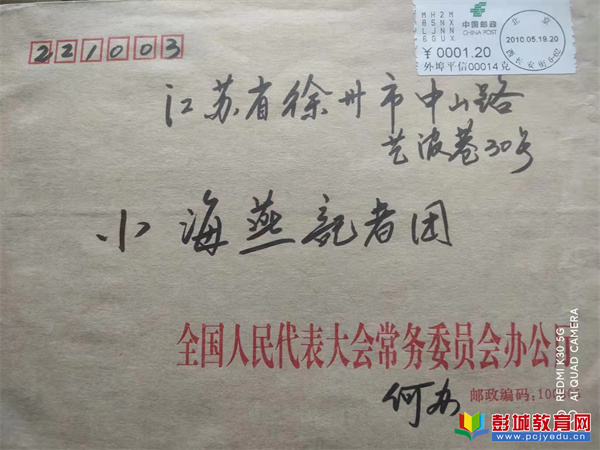 221003
MH2M
BSNX
LJNN
6GUX
中国邮政
CHINA POST
¥0001.20
外埠平信00014克
北京
2010.05.19.20
江苏省徐州市中山路
艺波巷30号
小海燕記者团
全国人民代表大会常务委员会办公
何办
邮政编码:10
REDMI K30 5G
AI QUAD CAMERA
彭城教育网
www.pcjyedu.cn